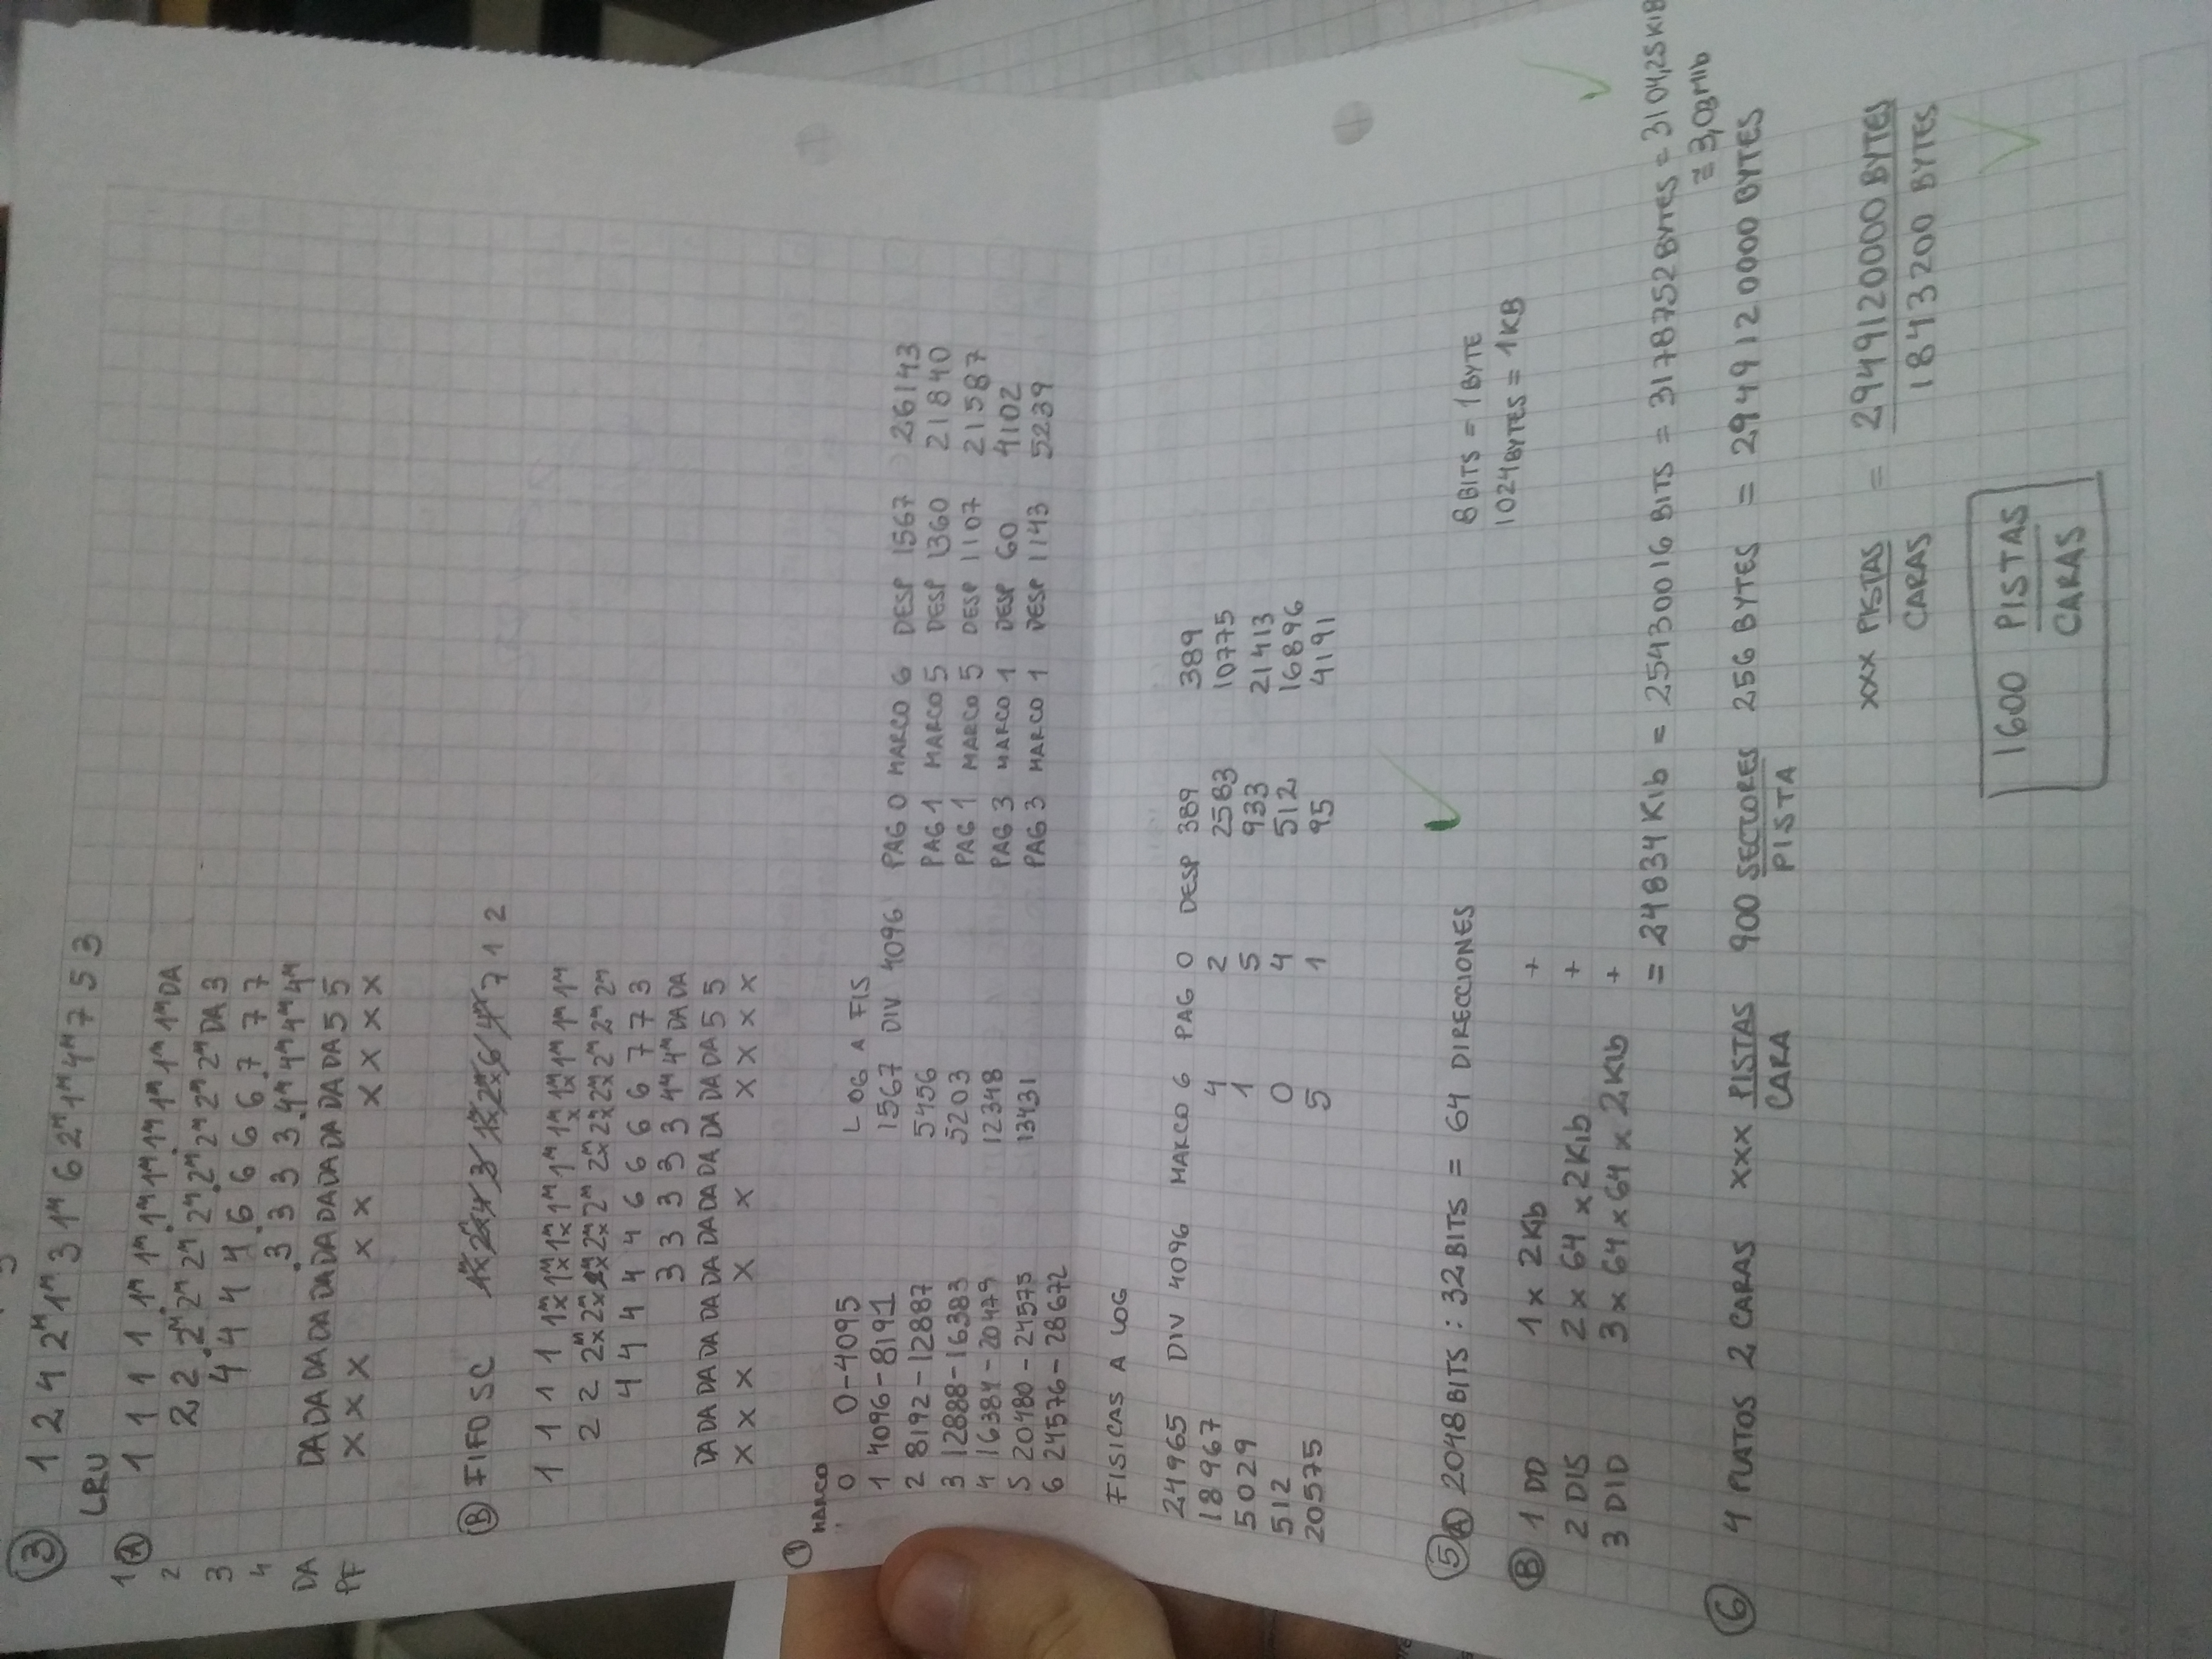 ③ 1 2 4 2ᴹ 1ᴹ 3 1ᴹ 6 2ᴹ 1ᴹ 4ᴹ 7 5 3
LRU
1 Ⓐ 1 1 1 1 .1ᴹ 1ᴹ .1ᴹ 1ᴹ .1ᴹ 1ᴹ 1ᴹ 1ᴹ DA
2 2 2 .2ᴹ 2ᴹ 2ᴹ 2ᴹ .2ᴹ 2ᴹ 2ᴹ 2ᴹ DA 3
3 4 4 4 4 .6 6 6 6 .7 7 7
4 .3 3 3 3 .4ᴹ 4ᴹ 4ᴹ 4ᴹ
DA DA DA DA DA DA DA DA DA DA DA DA 5 5
PF X X X X X X X X X
Ⓑ FIFO SC 1ᴹx 2ᴹx 4 3 1ᴹx 2ᴹx 6 4ᴹ 7 1 2
1 1 1 1 1ᴹx 1ᴹx 1ᴹx 1ᴹ 1ᴹ 1ᴹx 1ᴹx 1ᴹ 1ᴹ 1ᴹ
2 2 2ᴹx 2ᴹx 2ᴹx 2ᴹx 2ᴹ 2ᴹx 2ᴹx 2ᴹx 2ᴹ 2ᴹ 2ᴹ
4 4 4 4 4 6 6 6 6 7 7 3
3 3 3 3 3 4ᴹ 4ᴹ DA DA
DA DA DA DA DA DA DA DA DA DA DA DA 5 5
X X X X X X X X X
MARCO
0 0-4095 LOG A FIS
1 4096-8191 1567 DIV 4096 PAG 0 MARCO 6 DESP 1567 26143
2 8192-12887 5456 PAG 1 MARCO 5 DESP 1360 21840
3 12888-16383 5203 PAG 1 MARCO 5 DESP 1107 21587
4 16384-20479 12348 PAG 3 MARCO 1 DESP 60 4102
5 20480-24575 13431 PAG 3 MARCO 1 DESP 1143 5239
6 24576-28672
FISICAS A LOG
24965 DIV 4096 MARCO 6 PAG 0 DESP 389 389
18967 4 2 2583 10775
5029 1 5 933 21413
512 0 4 512 16896
20575 5 1 95 4191
⑤ Ⓐ 2048 BITS : 32 BITS = 64 DIRECCIONES
8 BITS = 1 BYTE
1024 BYTES = 1KB
Ⓑ 1 DD 1 x 2Kib +
2 DIS 2 x 64 x 2Kib +
3 DID 3 x 64 x 64 x 2Kib +
= 24834 Kib = 25430016 BITS = 3178752 BYTES = 3104,25 KIB
≅ 3,03 Mib
⑥ 4 PLATOS 2 CARAS xxx PISTAS/CARA 900 SECTORES/PISTA 256 BYTES = 2949120000 BYTES
xxx PISTAS/CARAS = 2949120000 BYTES/1843200 BYTES
1600 PISTAS/CARAS